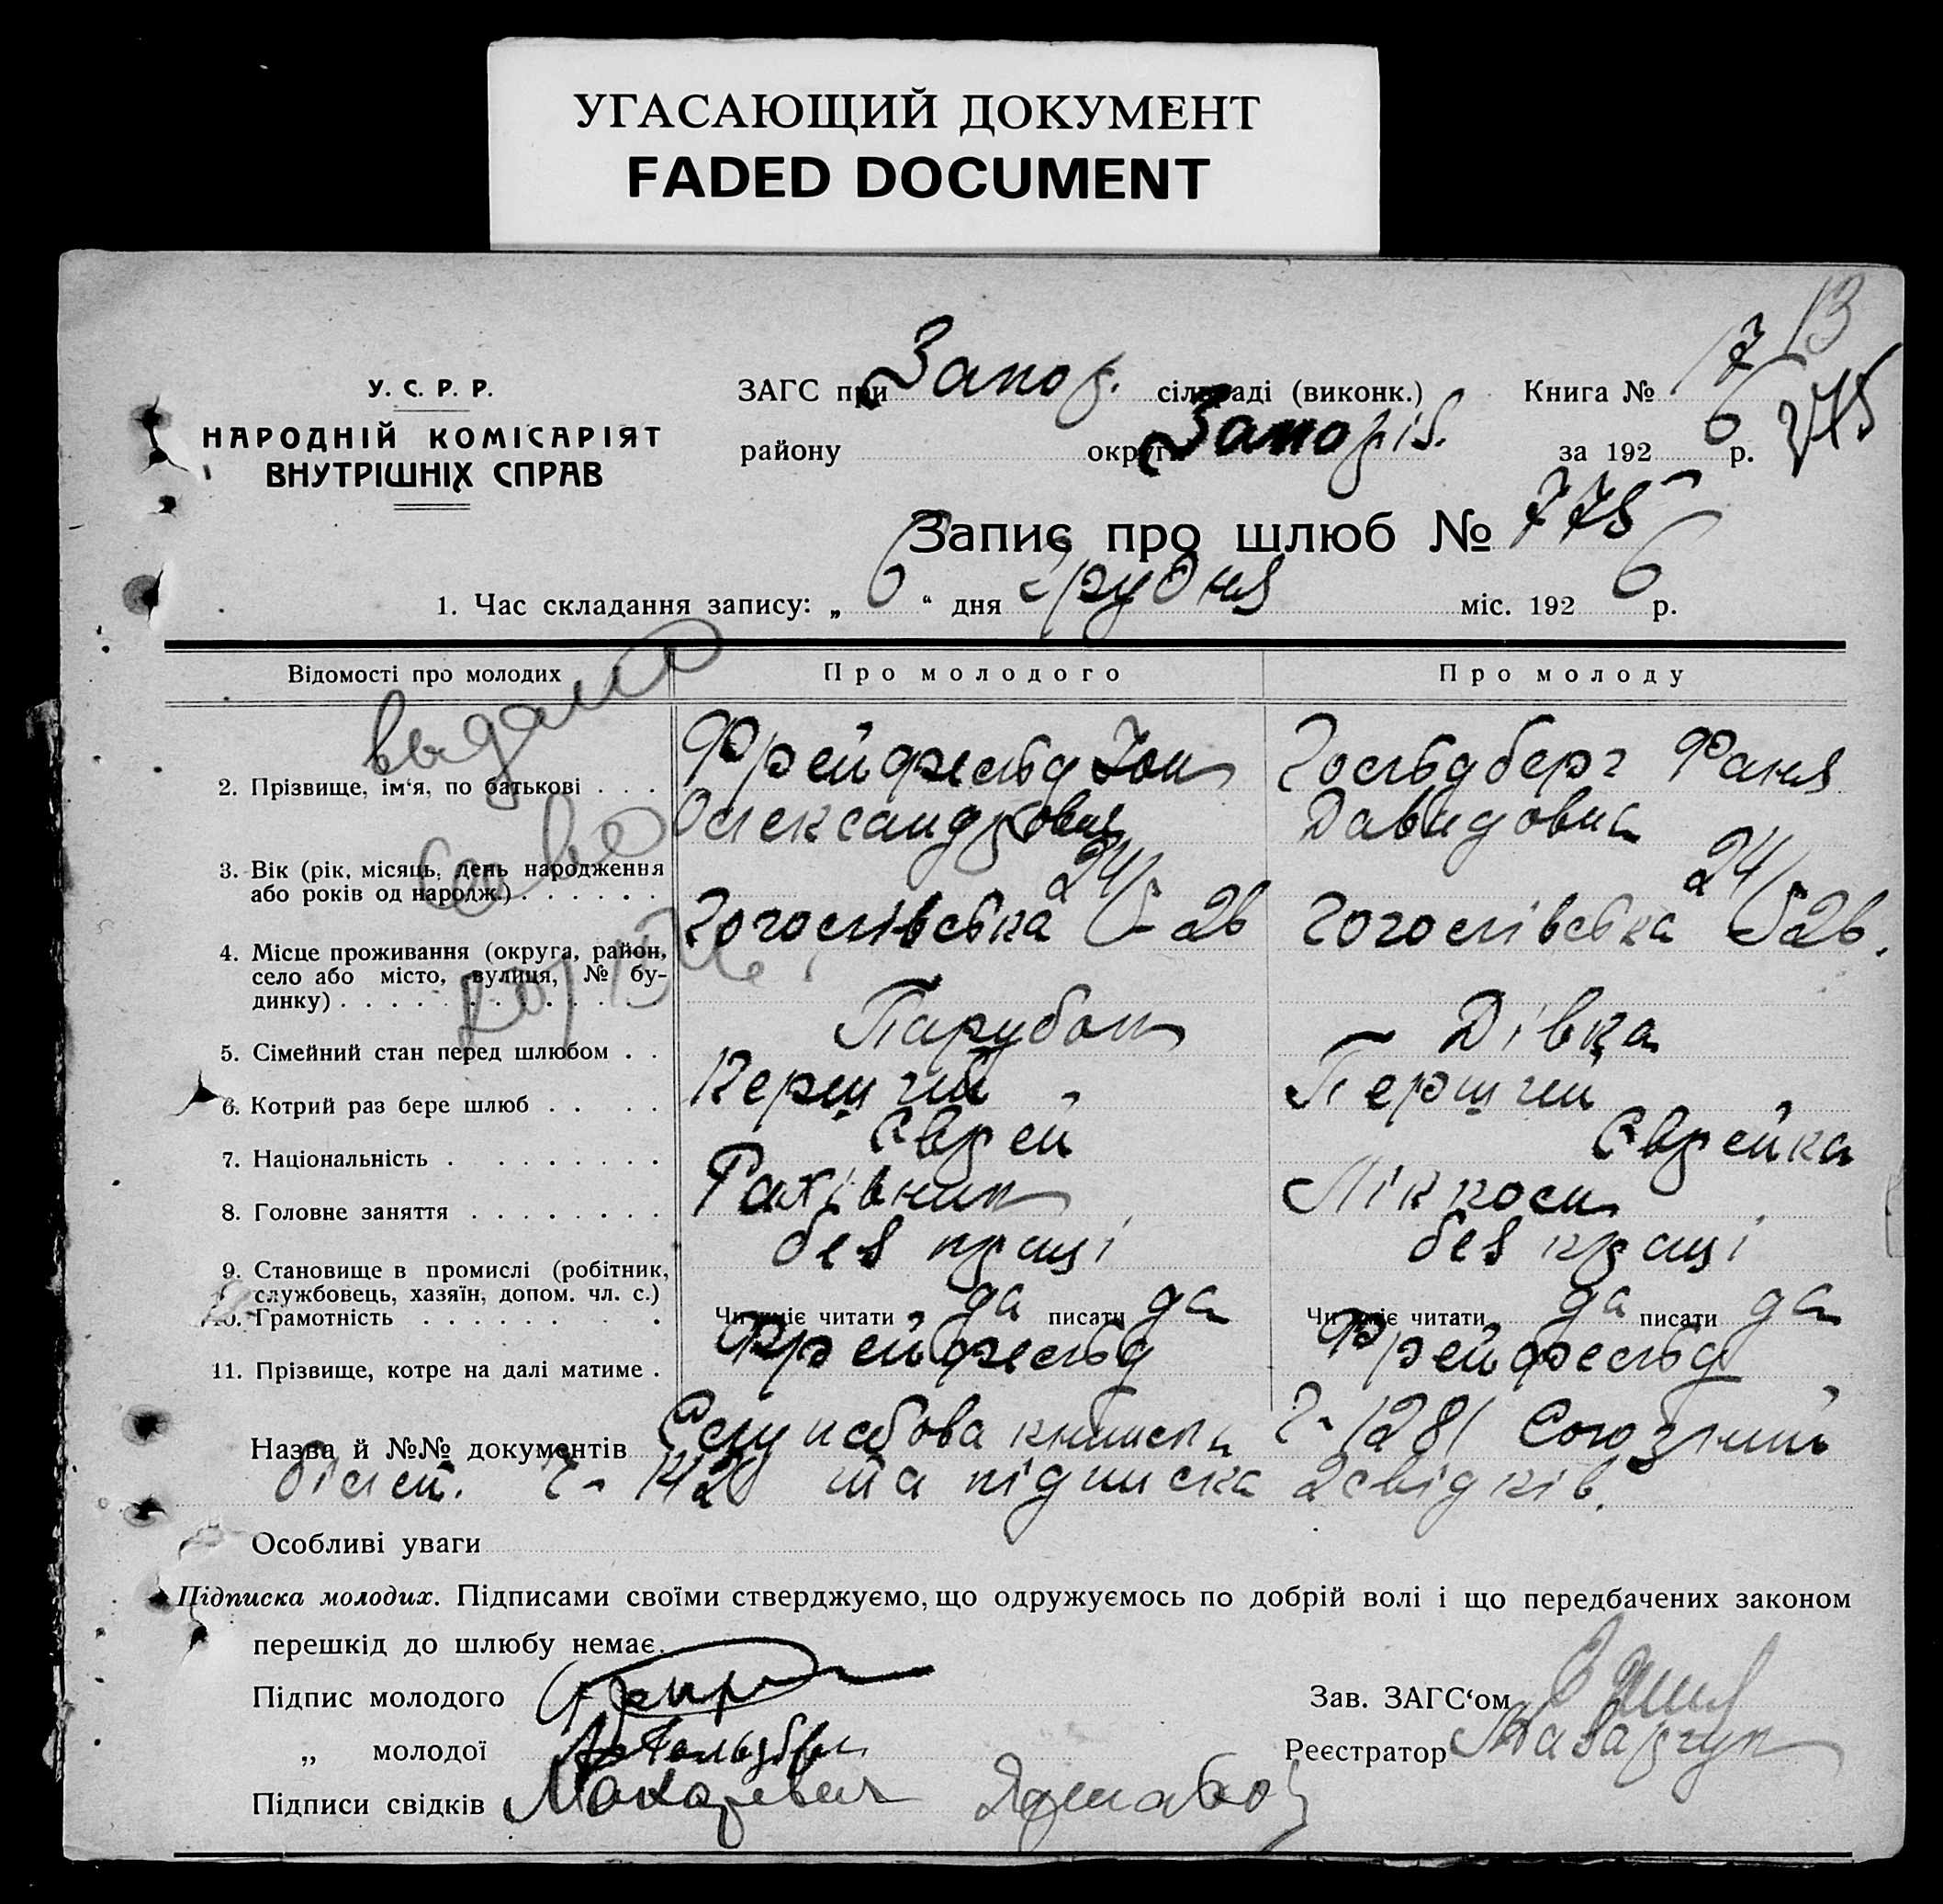 УГАСАЮЩИЙ ДОКУМЕНТ
FADED DOCUMENT
13
У. С. Р. Р.
НАРОДНІЙ КОМІСАРІЯТ
ВНУТРІШНІХ СПРАВ
ЗАГС при Запор. сільраді (виконк.) Книга № 17
району округи Запоріз. за 192 6 р. 275
Запис про шлюб № 775
1. Час складання запису: „ 6 “ дня Грудня міс. 192 6 р.
Відомості про молодих Про молодого Про молоду
выдано
2. Прізвище, ім‘я, по батькові . . . Фрейфельд Гольдберг Фаня
Олександрович Давидовна
3. Вік (рік, місяць, день народження
або років од народж.) . . . . . . 24 24
4. Місце проживання (округа, район, Гоголівська 26 Гоголівська 26.
село або місто, вулиця, № бу-
динку) . . . . . . . . . . . .
5. Сімейний стан перед шлюбом . . Парубок Дівка
6. Котрий раз бере шлюб . . . . Перший Перший
7. Національність . . . . . . . . Єврей Єврейка
8. Головне заняття . . . . . . . . Рахівник
9. Становище в промислі (робітник, без праці без праці
службовець, хазяїн, допом. чл. с.)
10. Грамотність . . . . . . . . Чи вміє читати да писати да Чи вміє читати да писати да
11. Прізвище, котре на далі матиме . Фрейфельд Фрейфельд
Назва й №№ документів книжка Ч- 1281 Союзний
білет. Ч- 1420 та підписка 2 свідків.
Особливі уваги
Підписка молодих. Підписами своїми стверджуємо, що одружуємось по добрій волі і що передбачених законом
перешкід до шлюбу немає.
Підпис молодого Зав. ЗАГС‘ом
„ молодої Реєстратор Назарчук
Підписи свідків Макаревич